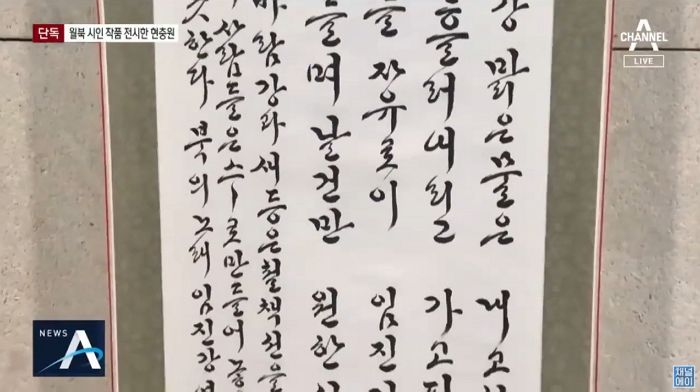 단독 월북 시인 작품 전시한 현충원
CHANNEL A
LIVE
강 맑은 물은 내 고
흘러내리고 가고파
들 자유로이 임진
들며 날건만 원한
바람 강과 새 등은 철책선을
사람들은 스스로 만들어 놓
못한다 북의 노래 임진강
NEWS A
채널에이